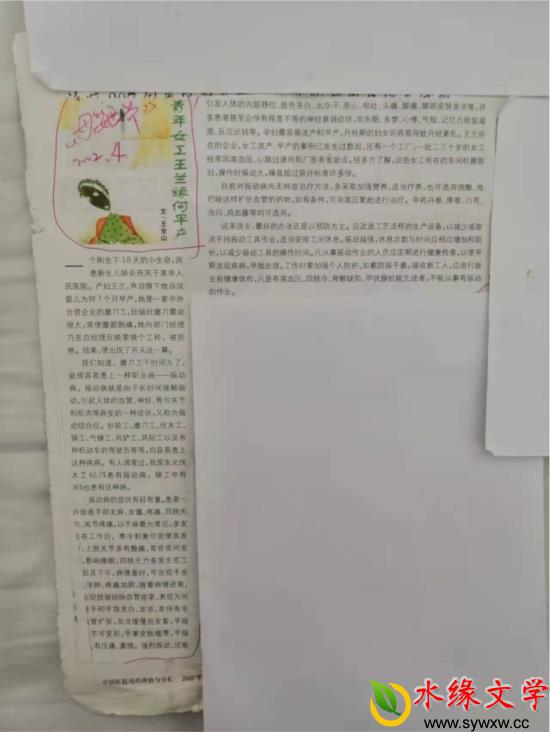 《母婴世界》
2002.4.
青年女工王兰缘何早产
文·王金山
一个刚生下18天的小生命,因
患新生儿肺炎而死于某市人
民医院。产妇王兰,声泪俱下地诉说
婴儿为何7个月早产,她是一家中外
合资企业的磨刀工,妊娠时磨刀震动
很大,常使腹部剧痛,她向部门经理
乃至总经理反映要换个工种,被拒
绝。结果,便出现了开头这一幕。
我们知道,磨刀工干时间久了,
就很容易患上一种职业病——振动
病。振动病就是由于长时间接触振
动,引起人体的血管、神经、骨与关节
和肌肉等病变的一种症状,又称为振
动综合征。砂轮工、磨刀工、伐木工、
铆工、气锤工、风铲工、风钻工以及各
种机动车的驾驶员等等,均容易患上
这种疾病。有人调查过,我国东北伐
木工62.7%患有振动病,铆工中有
36%也患有这种病。
振动病的症状有轻有重。患者一
开始是手部发麻、发僵、疼痛、四肢无
力、关节疼痛,以手麻最为常见,多发
生在工作后,寒冷刺激可促使其发
,上肢关节多有酸痛,常在夜间发
,影响睡眠,四肢无力多发生在工
后及下午,病情重时,可出现手发
、浮肿、疼痛加剧,随着病情进展,
出现肢端动脉血管痉挛,表现为间
手和手指发白、发凉,并伴有毛
管扩张,血流缓慢而发紫;手指
节可变形,手掌皮肤增厚,手指
有压痛、萎缩。强烈振动,还能
引发人体的内脏移位、脸色苍白、出冷汗、恶心、呕吐、头痛、脚痛、脚部皮肤发凉等,许
多患者甚至会伴有程度不等的神经衰弱症状,如失眠、多梦、心悸、气短、记忆力明显减
退、反应迟钝等。孕妇最容易流产和早产,月经期的妇女则容易导致月经紊乱。王兰所
在的企业,女工流产、早产的事例已发生过数起,还有一个工厂,一批二三十岁的女工
经常因高血压、心跳过速而到厂医务室就诊。经多方了解,这些女工所在的车间机器陈
旧,操作时振动大,噪音超过容许标准许多倍。
目前对振动病尚无特效治疗方法,多采取加强营养,适当疗养,也可选用烟酸、地
巴唑这样扩张血管的药物,如有条件,可用高压氧舱进行治疗。中药丹参、降香、川芎、
当归、鸡血藤等均可选用。
说来说去,最好的办法还是以预防为主。应改进工艺流程的生产设备,以减少或取
消手持振动工具作业,适当安排工间休息。振动越强,休息次数与时间应相应增加和延
长,以减少振动工具的操作时间。凡从事振动作业的人员应定期进行健康检查,以便早
期发现疾病,早做处理。工作时要加强个人防护,如戴防振手套。接收新工人,应进行就
业前健康体检,凡是有高血压、四肢冷、脊髓缺陷、甲状腺机能亢进者,不能从事有振动
的作业。
中国医院用药评价与分析 2002年
水缘文学
www.sywxw.cc